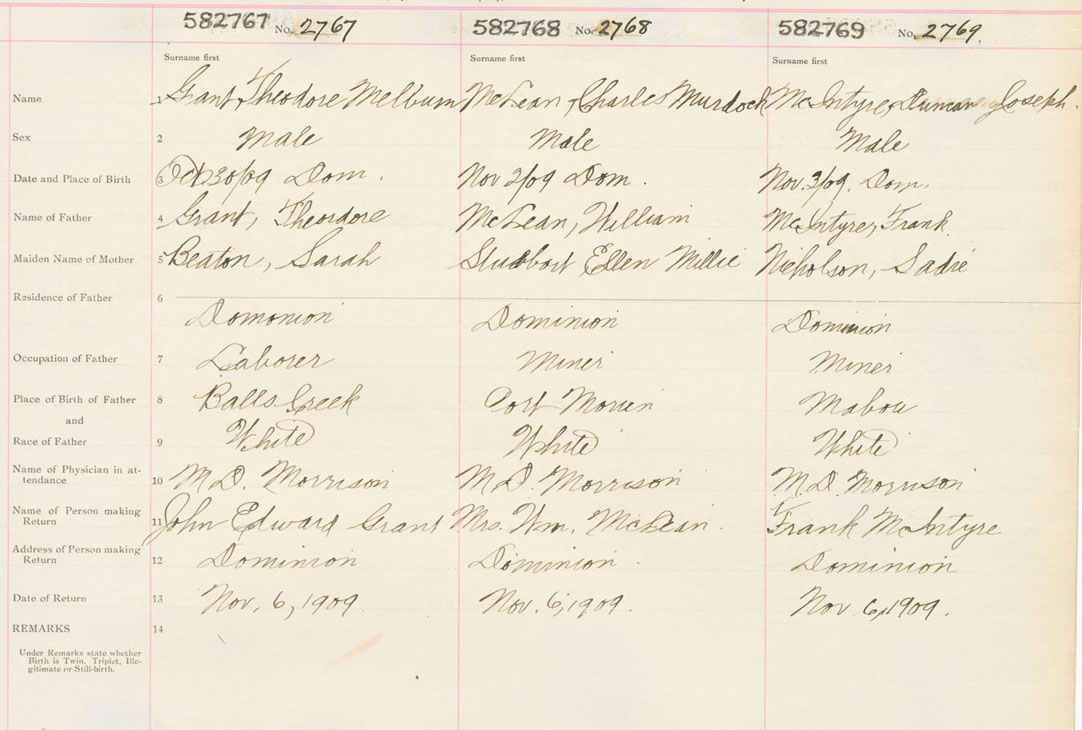 582767 No. 2767 582768 No. 2768 582769 No. 2769.
Surname first Surname first Surname first
Name 1 Grant, Theodore Melburn McLean, Charles Murdoch McIntyre, Duncan Joseph.
Sex 2 Male Male Male
Date and Place of Birth 3 Oct 30/09 Dom. Nov 2/09 Dom. Nov. 3/09. Dom.
Name of Father 4 Grant, Theodore McLean, William McIntyre, Frank
Maiden Name of Mother 5 Beaton, Sarah Ellen Millie Nicholson, Sadie
Residence of Father 6
Domonion Dominion Dominion
Occupation of Father 7 Laborer Miner Miner
Place of Birth of Father 8 Balls Creek Port Morien Mabou
and
Race of Father 9 White White White
Name of Physician in at-
tendance 10 M.D. Morrison M.D. Morrison M.D. Morrison
Name of Person making
Return 11 John Edward Grant Mrs. Wm. McLean. Frank McIntyre
Address of Person making
Return 12 Dominion Dominion. Dominion
Date of Return 13 Nov. 6, 1909. Nov. 6, 1909. Nov. 6, 1909.
REMARKS 14
Under Remarks state whether
Birth is Twin, Triplet, Ille-
gitimate or Still-birth.